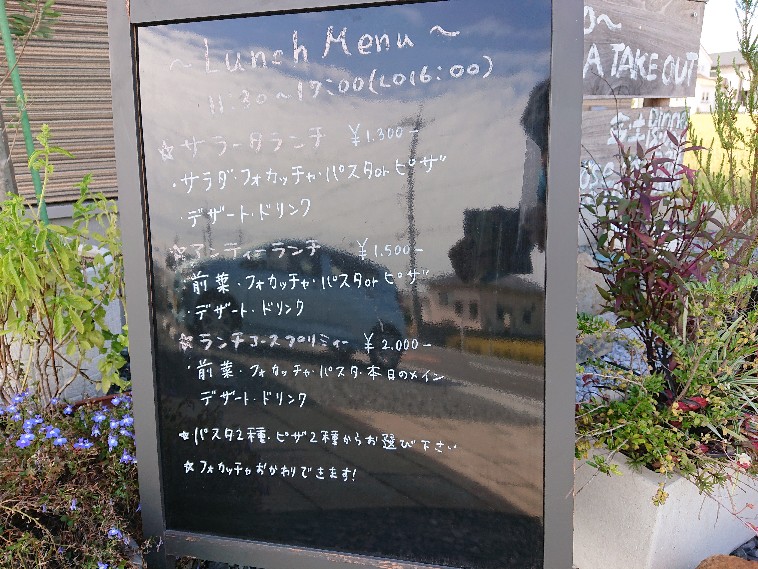 ~ Lunch Menu ~
11:30~17:00(LO16:00)
☆サラータランチ ¥1.300-
・サラダ・フォカッチャ・パスタorピザ
・デザート・ドリンク
☆アンティーランチ ¥1.500-
・前菜・フォカッチャ・パスタorピザ
・デザート・ドリンク
☆ランチコースプリミィー ¥2.000-
・前菜・フォカッチャ・パスタ・本日のメイン
デザート・ドリンク
☆パスタ2種・ピザ2種からお選び下さい
☆フォカッチャおかわりできます!
A TAKE OUT
Dinner